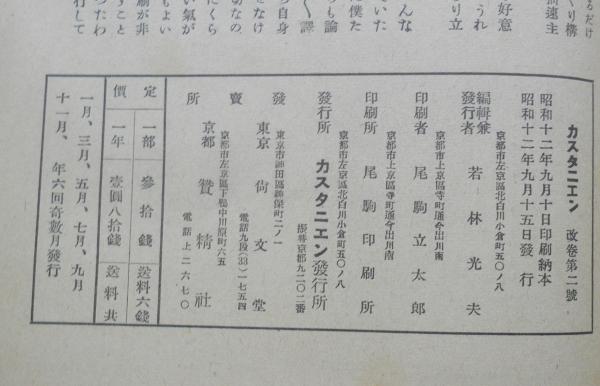 るだけ
くり構
高速主
好意
うれ
り立
んな
いた
僕た
も論
く譯
ら自身
をなけ
切なの
にくら
い氣が
もよい
刷が非
すこと
つたわ
行して
カスタニエン 改卷第二號
昭和十二年九月十日印刷納本
昭和十二年九月十五日發行
京都市左京區北白川小倉町五〇ノ八
編輯兼發行者 若林光夫
京都市上京區寺町通今出川南
印刷者 尾駒立太郎
京都市上京區寺町通今出川南
印刷所 尾駒印刷所
京都市左京區北白川小倉町五〇ノ八
發行所 カスタニエン發行所
振替京都九二〇二番
發賣所
東京市神田區神保町二ノ一
東京 尙文堂
電話九段(33)一七五四
京都市左京區下鴨中川原町六五
京都 贊精社
電話上二六七〇
定價
一部 參拾錢 送料六錢
一年 壹圓八拾錢 送料共
一月、三月、五月、七月、九月
十一月、年六回奇數月發行